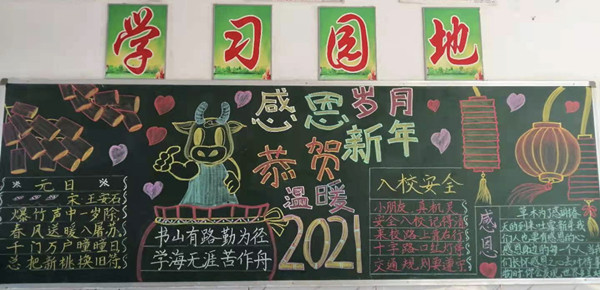 学习园地
感恩岁月
新年
恭贺
温暖
2021
元日
宋 王安石
爆竹声中一岁除
春风送暖入屠苏
千门万户曈曈日
总把新桃换旧符
书山有路勤为径
学海无涯苦作舟
入校安全
小朋友 真机灵
安全入校记得清
来校路上靠右行
十字路口红灯停
交通规则要遵守
感恩